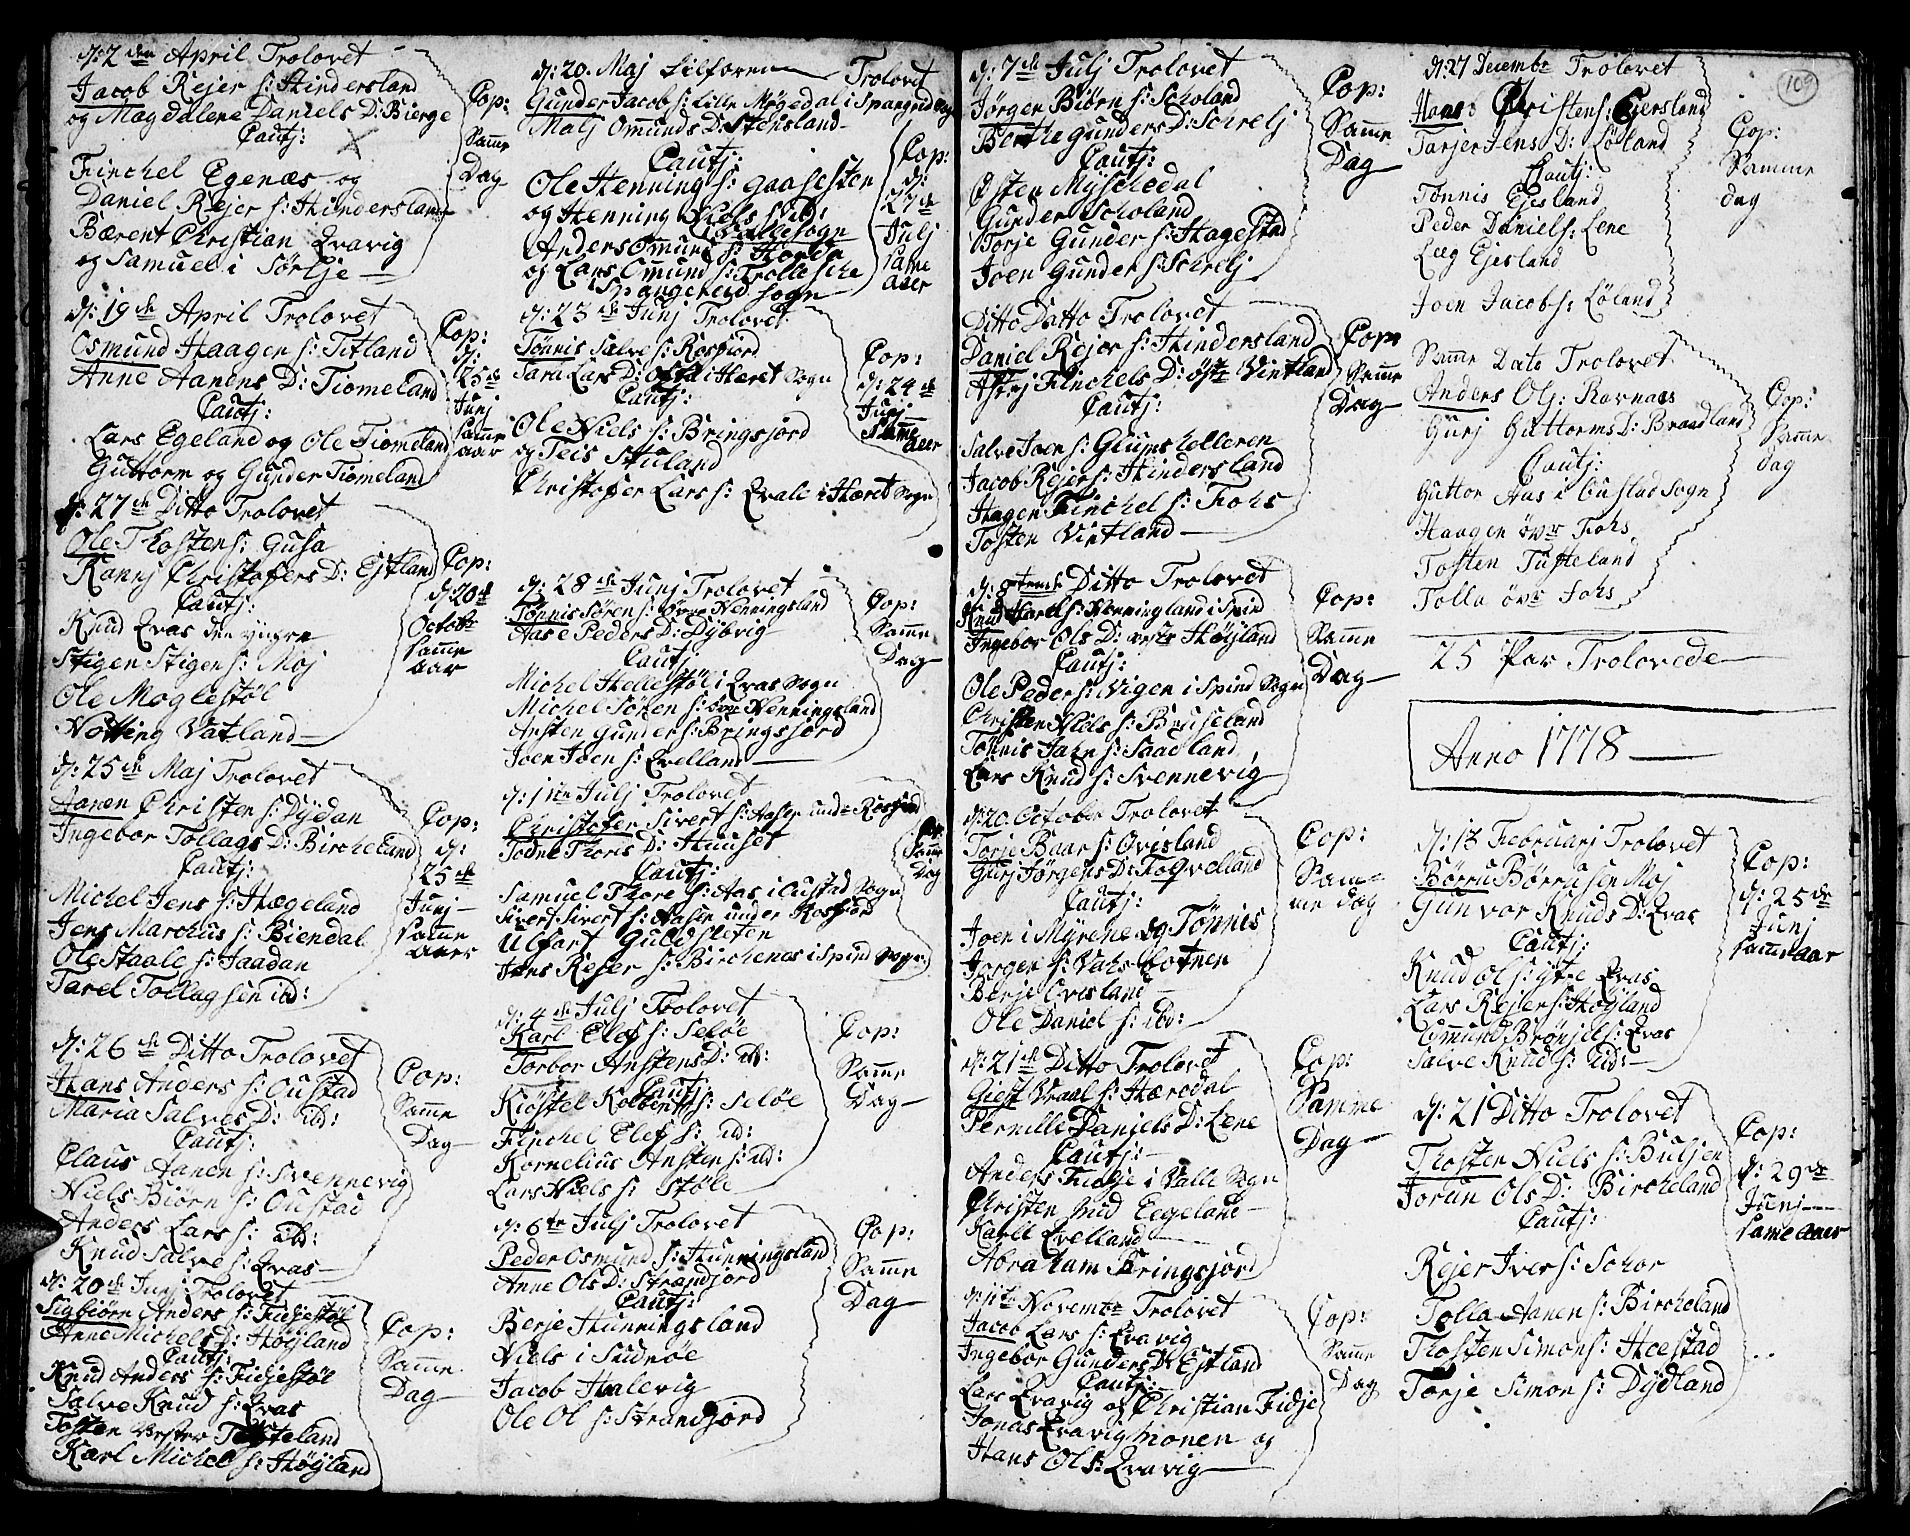 d: 2den April Trolovet
Jacob Rejer s: Hindersland
og Magdalene Daniels D: Bierge
Cautj:
Finchel Egenæs og
Daniel Rejer s: Hindersland
Bærent Christian Qvavig
og Samuel i Sørtje
Cop:
Samme
Dag
d: 19de April Trolovet
Osmund Haagen s: Titland
Anne Aanens D: Tiomeland
Cautj:
Lars Egeland og Ole Tiomeland
Guttorm og Gunder Tiomeland
Cop:
d:
25de
Junj
samme
aar
d: 27de Ditto Trolovet
Ole Thosten s: Gusa
Rannj Christophers D: Ejtland
Cautj:
Knud Qvas den yngre
Stigen Stigen s: Moj
Ole Moglestøl
Notting Vatland
Cop:
d 20de
Octobr
samme
aar
d: 25de Maj Trolovet
Aanen Christen s: Dydan
Ingebor Tollags D: Bircheland
Cautj:
Michel Jens s: Hægeland
Jens Marchus s: Biendal
Ole Staale s: Jaadan
Tarel Tollagsen ibd:
Cop:
d:
25de
Junj
samme
aars
d: 26de Ditto Trolovet
Hans Anders s: Oustad
Maria Salves D: ibd:
Cautj:
Claus Aanen s: Svennevig
Niels Biørn s: Oustad
Anders Lars s: ibd:
Knud Salve s: Qvas
Cop:
Samme
Dag
d: 20de Junj Trolovet
Sigbiørn Anders s: Fidjestøl
Anne Michels D: Høyland
Cautj:
Knud Anders s: Fidjestøl
Salve Knud s: Qvas
Tosten Vester Tusteland
Karl Michel s: Høyland
Cop:
Samme
Dag
d: 20. Maj Trolovet
Gunder Jacob s: Lille Møgedal i Spangereid
Malj Omunds D: Stensland
Cautj:
Ole Henning s: Gaasesten
og Henning Niels s: ibd:
Vallesogn
Anders Omund s: Horda
og Lars Omund s: Trolleschee
Spangereid sogn
Cop:
d:
27de
Julj
same
aaer
d: 23de Junj Trolovet
Tønnis Salve s: Rosfiord
Tara Lars D: i Hæret Sogn
Cautj:
Ole Niels s: Bringsjord
og Teis Stuland
Christofer Lars s: Qvale i Hæret Sogn
Cop:
d: 24de
Junj
Same
aaer
d: 28de Junj Trolovet
Tønnis Søren s: Øvre Henningsland
Aase Peders D: Dybvig
Cautj:
Michel Hellestøl i Qvas Sogn
Michel Sören s: övre Henningsland
Ansten Gunder s: Bringsjord
Joen Joen s: Qvelland
Cop:
Samme
Dag
d: 1ne Julj Trolovet
Christofer Sivert s: Aasen under Rosfiord
Todne Thoris D: Huuset
Cautj:
Samuel Thore s: Aas i Oustad Sogn
Sivert Sivert s: Aasen under Rosfiord
Ulfart Guldsleten
Jens Rejer s: Birchenæs i Spind Sogn
Cop:
Samme
Dag
d: 4de Julj Trolovet
Karl Elef s: Seløe
Torbor Anstens D: ibd:
Cautj:
Kiøstel Kolbent s: Seløe
Finchel Elef s: ibd:
Kornelius Ansten s: ibd:
Lars Niels s: Støle
Cop:
Samme
Dag
d: 6te Julj Trolovet
Peder Osmund s: Hunningsland
Anne Ols D: Strandjord
Cautj:
Berje Hunningsland
Niels i Sudrøe
Jacob Halevig
Ole Ol s: Strandjord
Cop:
Samme
Dag
d: 7de Julj Trolovet
Jørgen Biørn s: Scholand
Berthe Gunders D: Schrelj
Cautj:
Østen Myschedal
Gunder Scholand
Torje Gunder s: Hagestad
Joen Gunder s: Schrelj
Cop:
Samme
Dag
Ditto Datto Trolovet
Daniel Rejer s: Hindersland
Astrj Finchels D: øste Vintland
Cautj:
Salve Joen s: Glumshelleren
Jacob Rejer s: Hindersland
Hagen Finchel s: Fohs
Tosten Vintland
Cop:
Samme
Dag
d: Ditto Trolovet
Knud Harel s: Henningland i Spind
Ingebor Ols D: vestr Høyland
Cautj:
Ole Peder s: Vigen i Spind Sogn
Christen Niels s: Bruseland
Tønnis Jahn s: Saadland
Lars Knud s: Svennevig
Cop:
Samme
Dag
d: 20. October Trolovet
Torje Baar s: Qvisland
Gurj Jörgens D: Foqvelland
Cautj:
Joen i Myrene og Tønnis
Jorgen s: Vahsbotnen
Berje Qvisland
Ole Daniel s: ibd:
Cop:
Sam=
me dag
d: 21de Ditto Trolovet
Giert Vraal s: Hæredal
Pernille Danjels D: Lene
Cautj:
Anders Fidje i Valle Sogn
Christen hud Eegeland
Karll Qvelland
Abraham Bringsjord
Cop:
Samme
Dag
d: 11te Novembr Trolovet
Jacob Lars s: Qvavig
Ingebor Gunders D: Ejtland
Cautj:
Lars Qvavig og Christian Fidje
Jonas Qvavig monen og
Hans Ols: Qvavig
Cop:
Samme
Dag
d: 27 Decembr Trolovet
Haas Christens: Ejersland
Tarjer Jens D: Løland
Cautj:
Tønnis Ejesland
Peder Daniels: Lene
Læg Ejesland
Joen Jacobs: Løland
Cop:
Samme
dag
109
Samme Dato Trolovet
Anders Olj: Ravnaas
Gurj Guttorms D: Braadland
Cautj:
Guttor Aas i Oustad Sogn
Haagen övr Fohs
Tosten Tusteland
Tolla övr Fohs
Cop:
Samme
dag
25 Par Trolovede
Anno 1778
d: 13 Februarj Trolovet
Børru Børrusen Moj
Gunvor Knuds D: Qvas
Cautj:
Knud Ol s: ytre Qvas
Lars Rejer s: Høyland
Osmund Brønjels: Qvas
Salve Knud s: ibd:
Cop:
d: 25de
Junj
samme aar
d: 21 Ditto Trolovet
Thosten Niels s: Buljen
Jorun Ols D: Bircheland
Cautj:
Rejer Iver s: Schor
Tolla Aanen s: Bircheland
Thosten Simons: Hoestad
Torje Simon s: Dydland
Cop:
d: 29de
Junj
same aaer